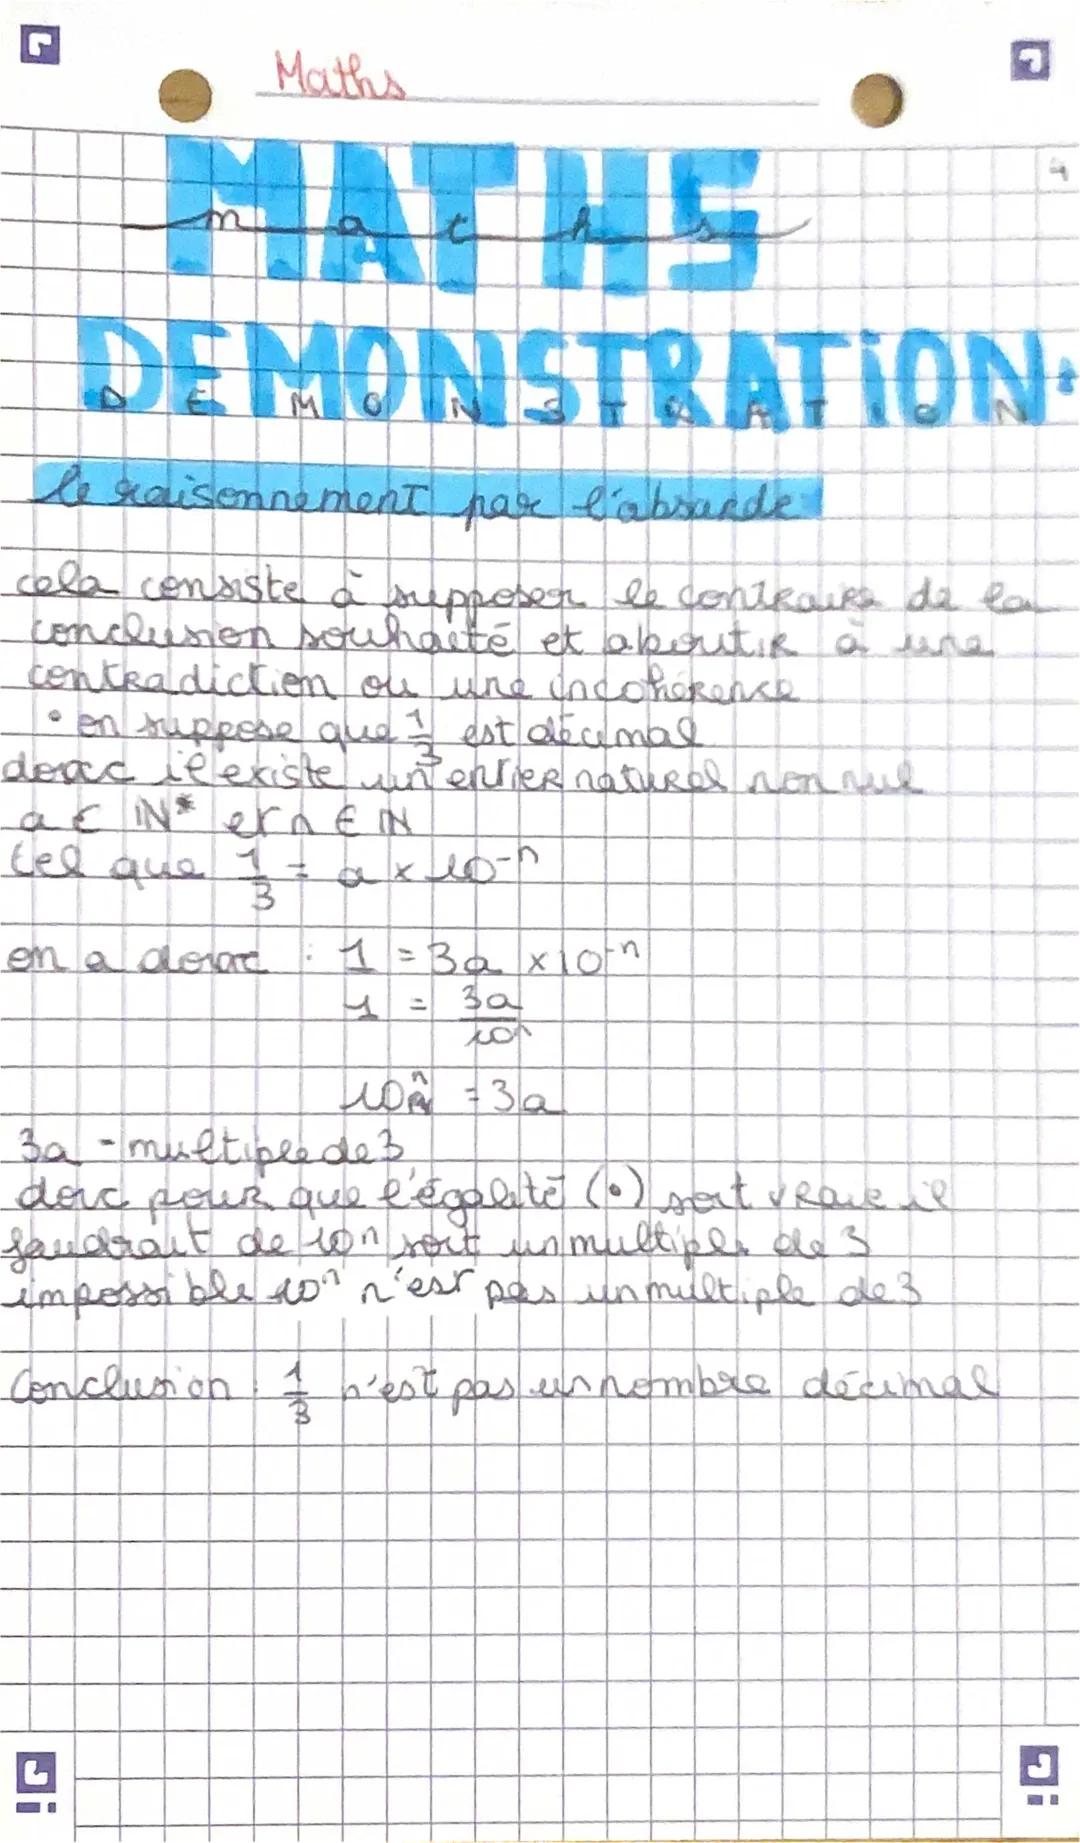 Maths
MATHS
maths
DEMONSTRATION:
DEMONSTRATION
le raisonnement par l'absurde:
cela consiste à supposer le contraire de la
conclusion souhaité et aboutir à une
contradiction ou une incohérence
• on suppose que 1/3 est décimal
donc il existe un entier naturel non nul
a ∈ ℕ* et n ∈ ℕ
tel que 1/3 = a × 10⁻ⁿ
on a donc : 1 = 3a × 10⁻ⁿ
1 = 3a/10ⁿ
10ⁿ = 3a
3a - multiple de 3
donc pour que l'égalité (•) soit vraie il
faudrait de 10n soit un multiple de 3
impossible 10ⁿ n'est pas un multiple de 3
Conclusion 1/3 n'est pas un nombre décimal